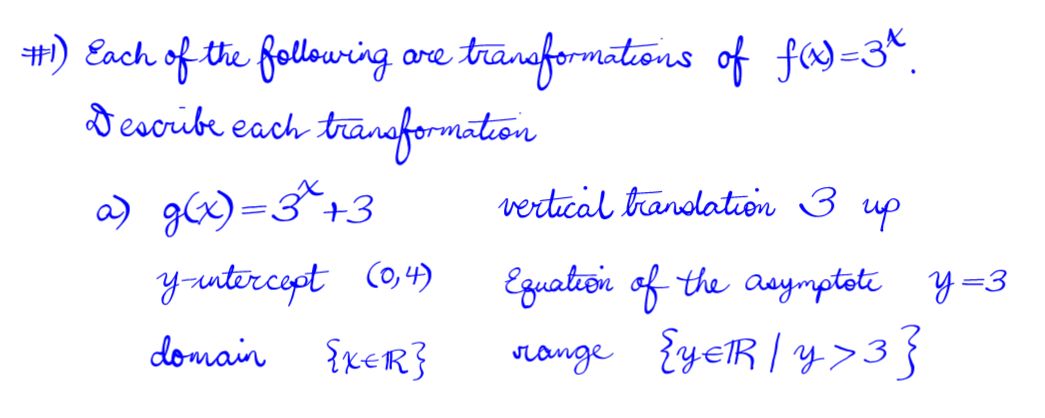 #1) Each of the following are transformations of f(x)=3^x.
Describe each transformation
a) g(x)=3^x+3 vertical translation 3 up
y-intercept (0,4) Equation of the asymptote y=3
domain {x∈ℝ} range {y∈ℝ | y>3}